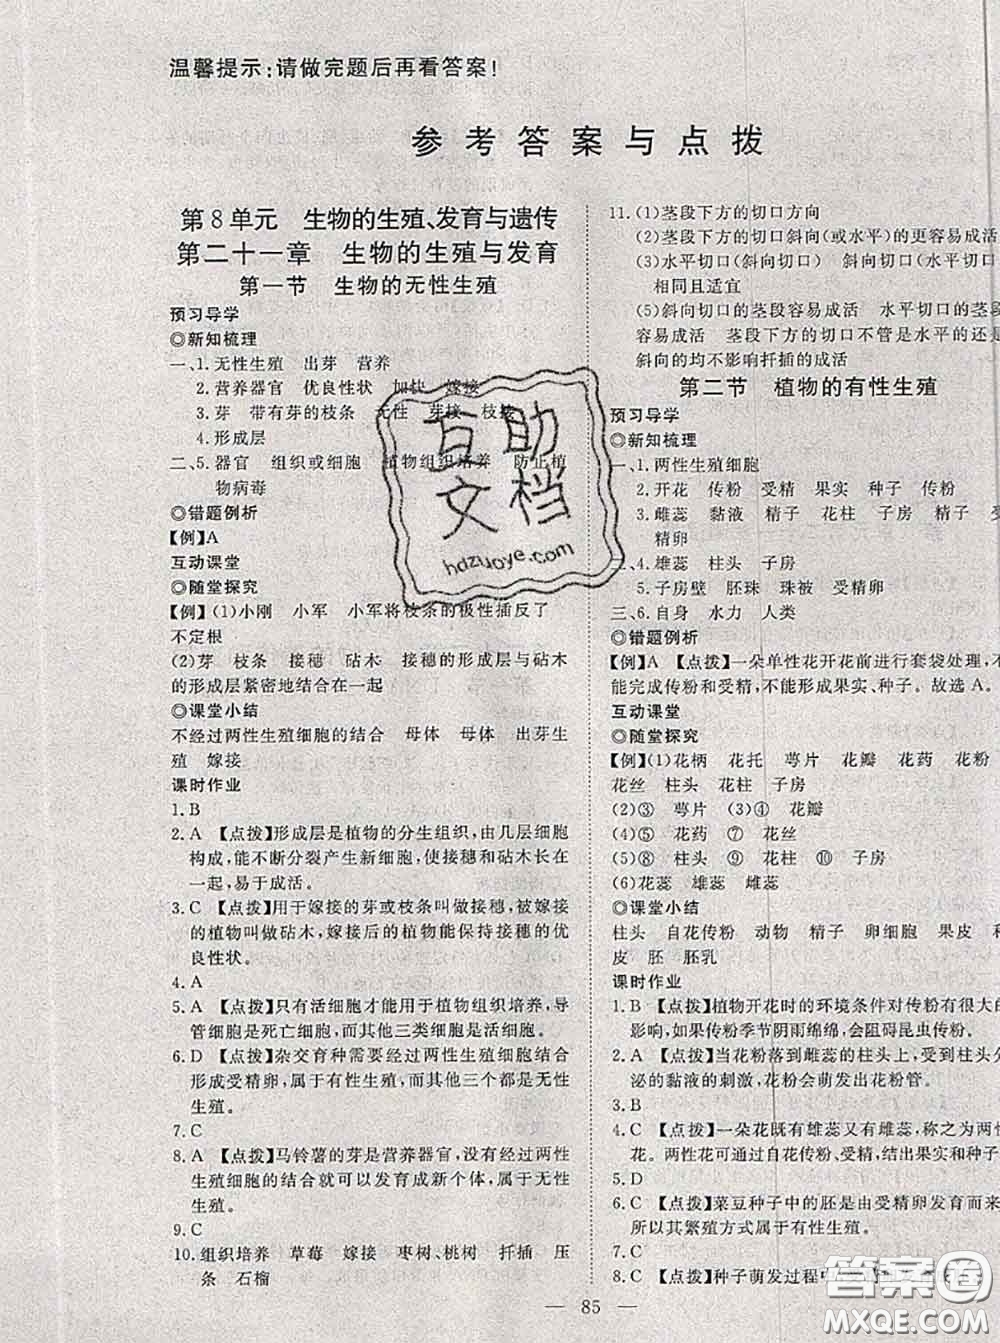 温馨提示:请做完题后再看答案!
参考答案与点拨
第8单元 生物的生殖、发育与遗传
第二十一章 生物的生殖与发育
第一节 生物的无性生殖
预习导学
◎新知梳理
一、1.无性生殖 出芽 营养
2.营养器官 优良性状 加快 嫁接
3.芽 带有芽的枝条 无性 芽接 枝接
4.形成层
二、5.器官 组织或细胞 植物组织培养 防止植
物病毒
◎错题例析
【例】A
互动课堂
◎随堂探究
【例】(1)小刚 小军 小军将枝条的极性插反了
不定根
(2)芽 枝条 接穗 砧木 接穗的形成层与砧木
的形成层紧密地结合在一起
◎课堂小结
不经过两性生殖细胞的结合 母体 母体 出芽生
殖 嫁接
课时作业
1.B
2.A 【点拨】形成层是植物的分生组织,由几层细胞
构成,能不断分裂产生新细胞,使接穗和砧木长在
一起,易于成活。
3.C 【点拨】用于嫁接的芽或枝条叫做接穗,被嫁接
的植物叫做砧木,嫁接后的植物能保持接穗的优
良性状。
4.A
5.A 【点拨】只有活细胞才能用于植物组织培养,导
管细胞是死亡细胞,而其他三类细胞是活细胞。
6.D 【点拨】杂交育种需要经过两性生殖细胞结合
形成受精卵,属于有性生殖,而其他三个都是无性
生殖。
7.C
8.A 【点拨】马铃薯的芽是营养器官,没有经过两性
生殖细胞的结合就可以发育成新个体,属于无性
生殖。
9.C
10.组织培养 草莓 嫁接 枣树、桃树 扦插 压
条 石榴
11.(1)茎段下方的切口方向
(2)茎段下方的切口斜向(或水平)的更容易成活
(3)水平切口(斜向切口) 斜向切口(水平切口)
相同且适宜
(5)斜向切口的茎段容易成活 水平切口的茎段
容易成活 茎段下方的切口不管是水平的还是
斜向的均不影响扦插的成活
第二节 植物的有性生殖
预习导学
◎新知梳理
一、1.两性生殖细胞
2.开花 传粉 受精 果实 种子 传粉
3.雌蕊 黏液 精子 花柱 子房 精子
精卵
二、4.雄蕊 柱头 子房
5.子房壁 胚珠 珠被 受精卵
三、6.自身 水力 人类
◎错题例析
【例】A 【点拨】一朵单性花开花前进行套袋处理,不
能完成传粉和受精,不能形成果实、种子。故选A。
互动课堂
◎随堂探究
【例】(1)花柄 花托 萼片 花瓣 花药 花粉
花丝 柱头 花柱 子房
(2)③ 萼片 (3)④ 花瓣
(4)⑤ 花药 ⑦ 花丝
(5)⑧ 柱头 ⑨ 花柱 ⑩ 子房
(6)花蕊 雄蕊 雌蕊
◎课堂小结
柱头 自花传粉 动物 精子 卵细胞 果皮 种
皮 胚 胚乳
课时作业
1.B 【点拨】植物开花时的环境条件对传粉有很大的
影响,如果传粉季节阴雨绵绵,会阻碍昆虫传粉。
2.A 【点拨】当花粉落到雌蕊的柱头上,受到柱头分
泌的黏液的刺激,花粉会萌发出花粉管。
3.B
4.C 【点拨】一朵花既有雄蕊,又有雌蕊,称之为两性
花。两性花可通过自花传粉、受精,结出果实。
5.D
6.C 【点拨】菜豆种子中的胚是由受精卵发育而来
所以其繁殖方式属于有性生殖。
7.C
8.C 【点拨】种子萌发过程中
85
互助
文档
hdzuoye.com
答案圈
MXQE.COM